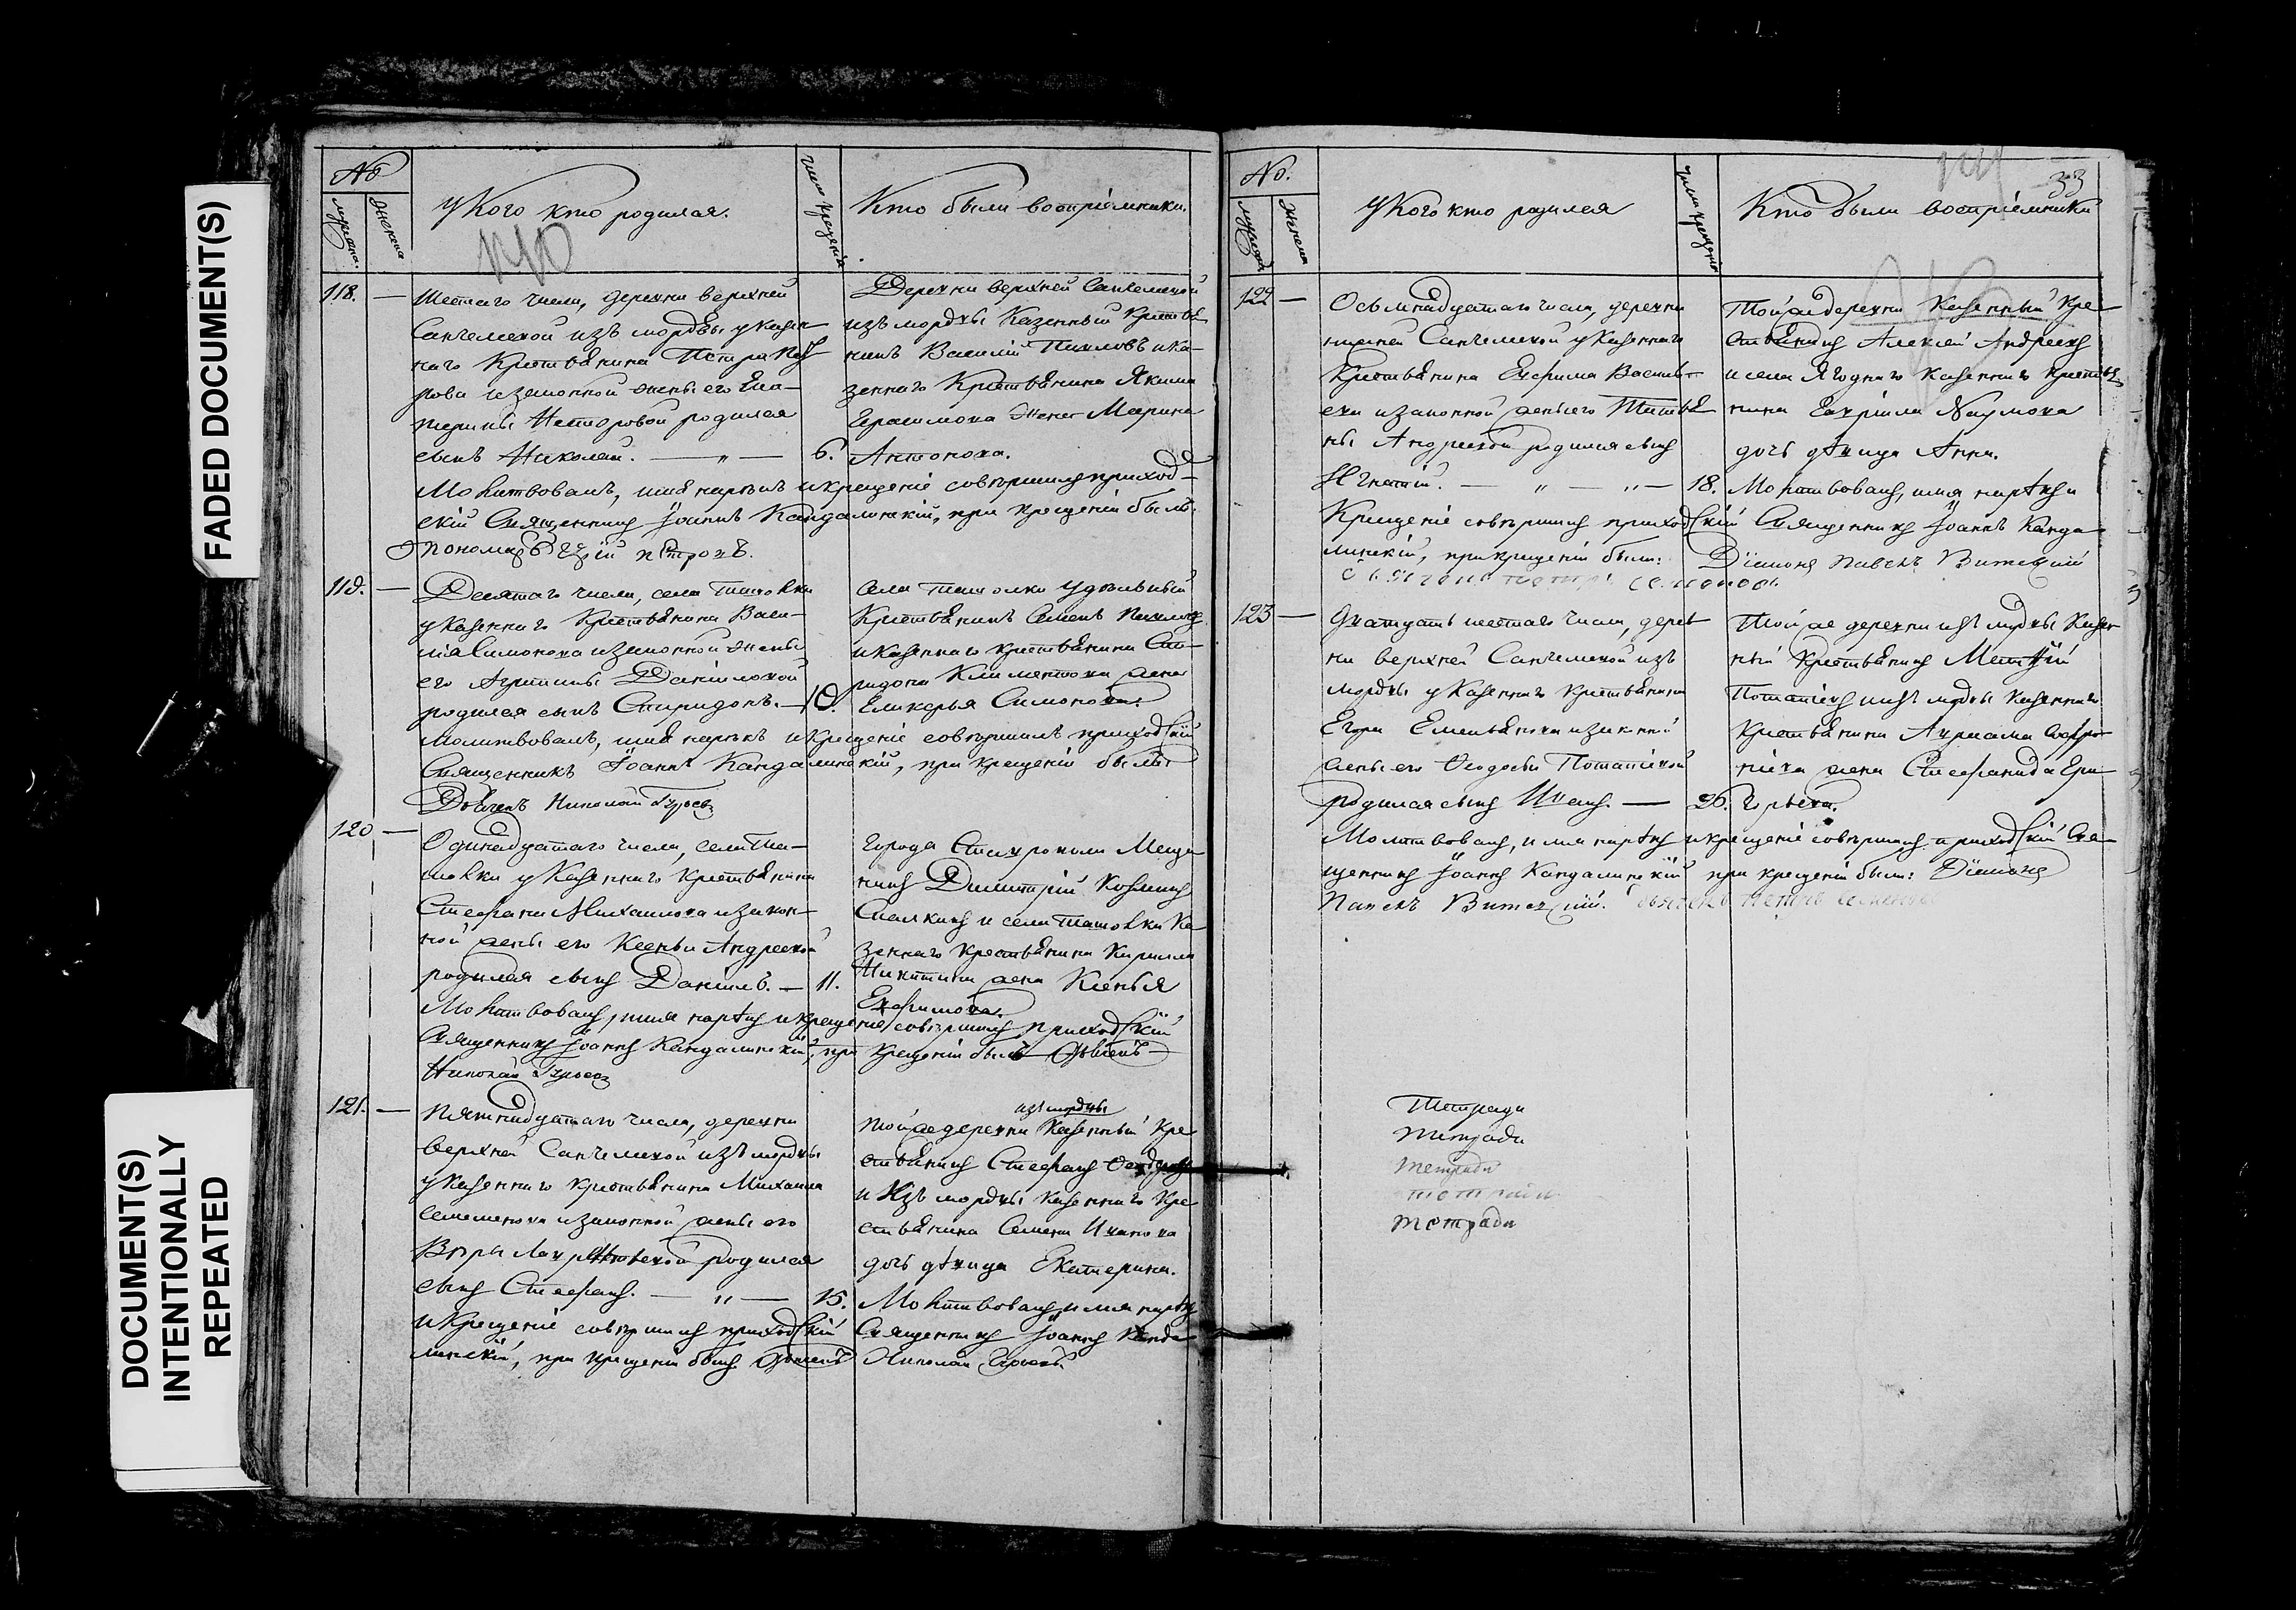 FADED DOCUMENT(S)
DOCUMENT(S)
INTENTIONALLY
REPEATED
№
мужеска.
женска
У Кого кто родился.
число крещенія
Кто были воспріемники.
118.
Шестаго числа, деревни верхней
Санчелеевой изъ мордвы у казен-
наго Крестьянина Петра
и законной жены его Ека-
терины Нестеровой родился
сынъ Николай. — " —
6.
Деревни верхней Санчелеевой
изъ мордвы Казенный Крестья
нинъ Василій Павловъ и ка-
зеннаго Крестьянина Якима
Герасимова жена Марина
Антонова.
Молитвовалъ, имя нарекъ и крещеніе совершилъ приход-
скій Священникъ Іоаннъ Кандалинскій, при крещеніи былъ:
Пономарь Петровъ.
119.
Десятаго числа, села Ташолки
у казеннаго Крестьянина Васи-
лія Симонова и законной жены
его Агрипины Даніиловой
родился сынъ Спиридонъ. —
10.
Села Ташолки удѣльный
Крестьянинъ Семенъ
и казеннаго крестьянина Спи-
ридона Климентова жена
Гликерья Симонова.
Молитвовалъ, имя нарекъ и крещеніе совершилъ приходскій
Священникъ Іоаннъ Кандалинскій, при крещеніи былъ
Дьячекъ Николай Гурьевъ
120 —
Одинадцатаго числа, села Та-
шолки у Казеннаго крестьянина
Стефана Михаилова и закон-
ной жены его Ксеньи Андреевой
родился сынъ Даніилъ. —
11.
Города Ставрополя Меща
нинъ Димитрій Козминъ
и села Ташолки Ка
зеннаго крестьянина Кирилла
Никитина жена Ксенья
Ефимова.
Молитвовалъ, имя нарѣкъ и крещеніе совершилъ приходскій
Священникъ Іоаннъ Кандалинскій, при крещеніи былъ Дьячекъ
Николай Гурьевъ
121. —
Пятнадцатаго числа, деревни
верхней Санчелеевой изъ мордвы
у казеннаго крестьянина Михаила
Семенова и законной жены его
Вѣры родился
сынъ Стефанъ. — " —
15.
изъ мордвы
Той же деревни Казенный Кре
стьянинъ Стефанъ
и Изъ мордвы казеннаго Кре
стьянина Семена Иванова
дочь дѣвица Екатерина.
Молитвовалъ имя нарѣкъ
и Крещеніе совершилъ приходскій Священникъ Іоаннъ Канда
линскій, при крещеніи былъ Дьячекъ Николай Гурьевъ
№.
мужеска
женска
У Кого кто родился
число крещенія
Кто были воспріемники
33
122 —
Осьмнадцатаго числа, деревни
нижней Санчелеевой у Казеннаго
Крестьянина Ефима Василь-
ева и законной жены его Татья
ны Андреевой родился сынъ
Игнатій. — " — " —
18.
Той же деревни Казенный Кре
стьянинъ Алексѣй Андреевъ
и села Ягоднаго Казеннаго Крестья
нина Гавріила Наумова
дочь дѣвица Анна.
Молитвовалъ, имя нарѣкъ и
Крещеніе совершилъ приходскій Священникъ Іоаннъ Канда
линскій, при крещеніи были: Діаконъ Павелъ
123 —
Двадцать шестаго числа, дерев
ни верхней Санчелеевой изъ
мордвы у Казеннаго крестьянина
Егора Емельянова и законной
жены его Ѳеодосьи Потаповой
родился сынъ Иванъ. —
26.
Той же деревни изъ мордвы Казен
ный Крестьянинъ
и изъ мордвы казеннаго
Крестьянина Софро
нова жена Стефанида Гри
горьева.
Молитвовалъ, имя нарѣкъ и крещеніе совершилъ приходскій Свя
щенникъ Іоаннъ Кандалинскій при крещеніи были: Діаконъ
Павелъ
Тетради
тетради
тетради
тетради
тетради